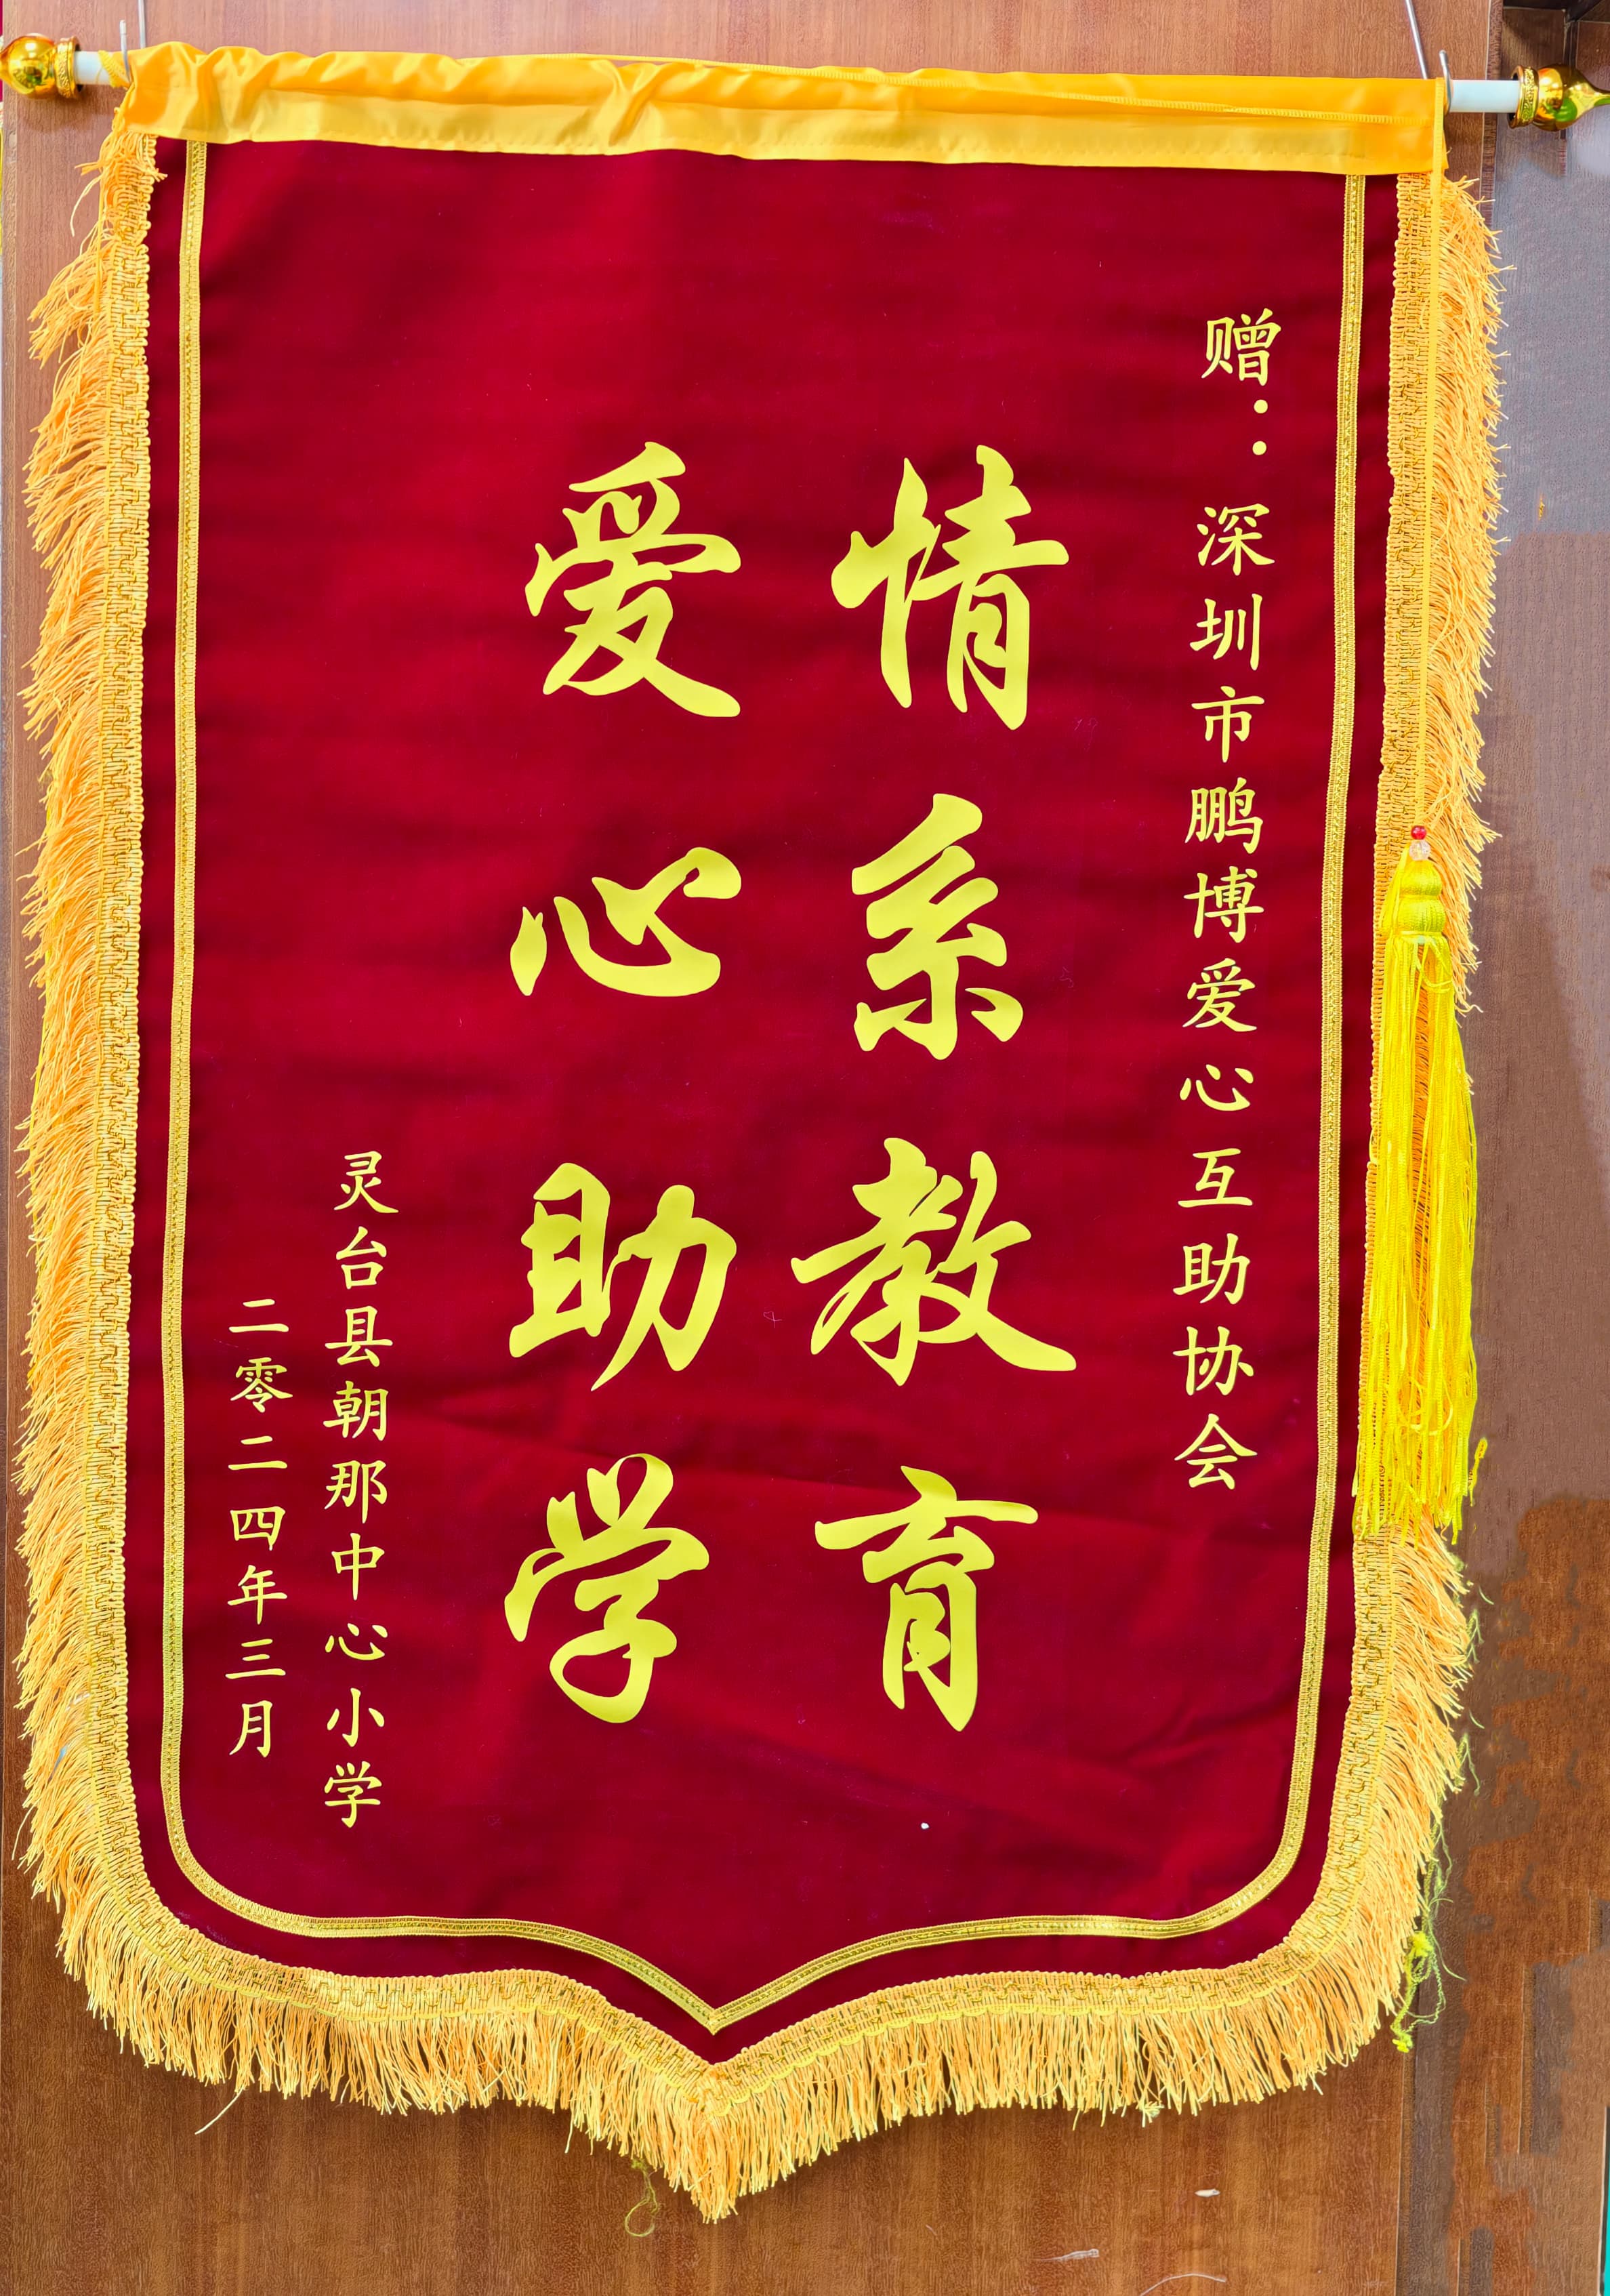 赠：深圳市鹏博爱心互助协会
情系教育
爱心助学
灵台县朝那中心小学
二零二四年三月